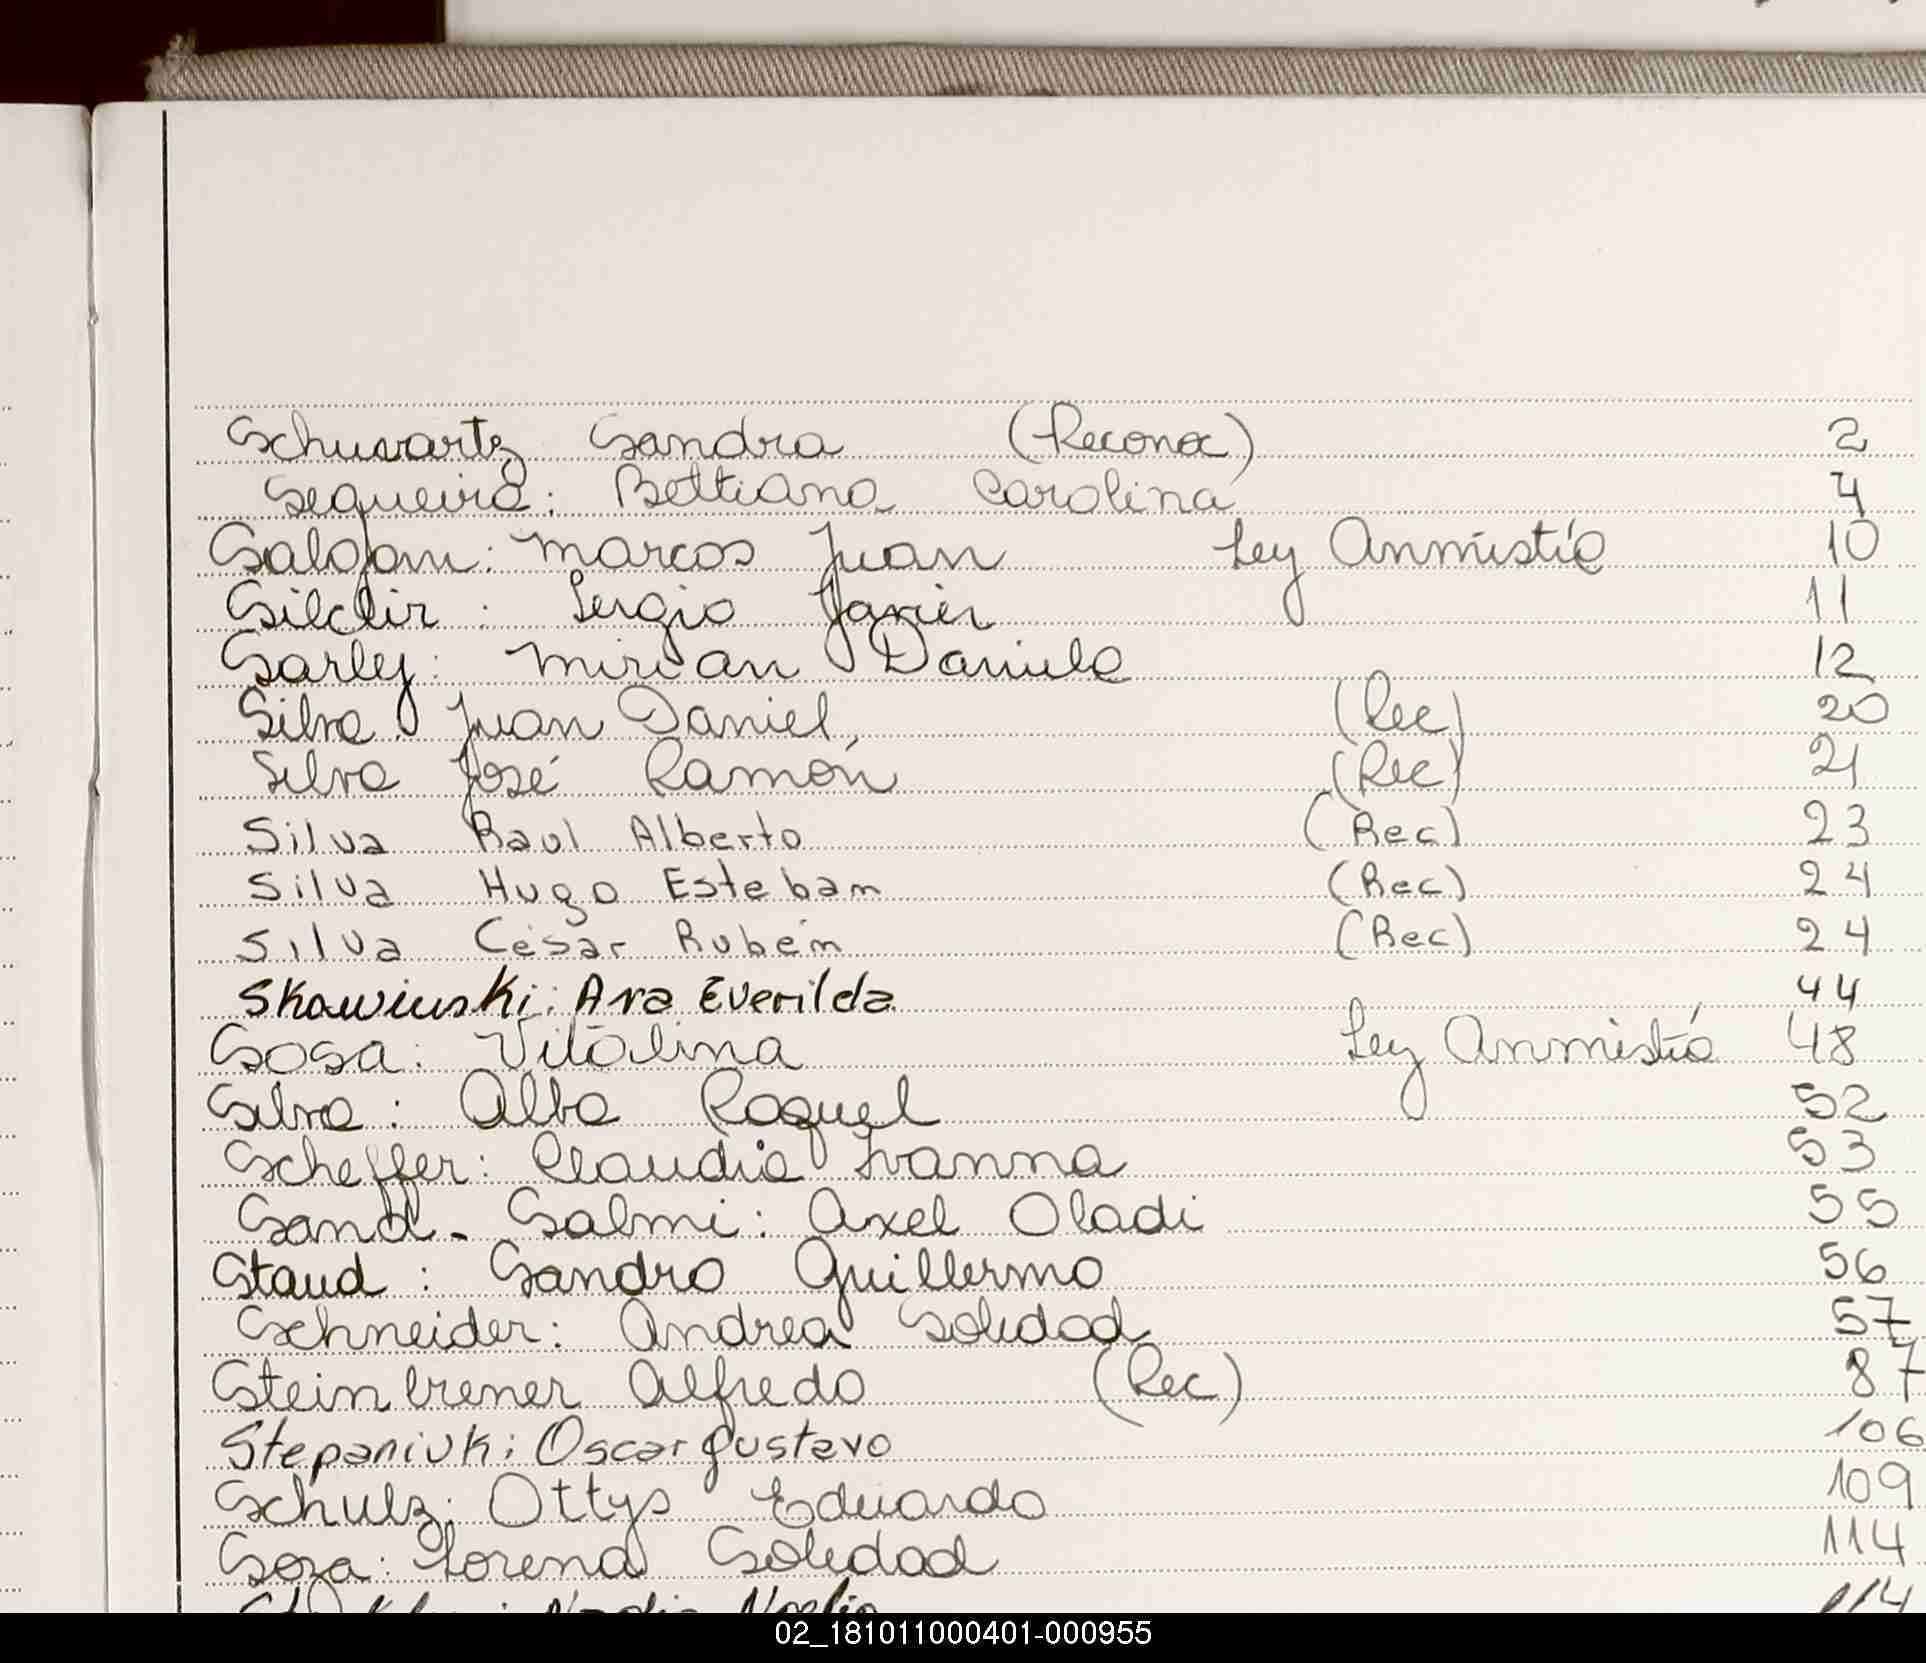 Schuvartz Sandra (Reconoc) 2
Sequeira: Bettiana Carolina 4
Marcos Juan Ley Anmistía 10
Sergio Javier 11
Sarley: Mirian Daniela 12
Silva Juan Daniel, (Rec) 20
Silva José Ramón (Rec) 21
Silva Raul Alberto (Rec) 23
Silva Hugo Esteban (Rec) 24
Silva César Rubén (Rec) 24
Skowiuski: Ana Everilda 44
Sosa: Vitalina Ley Anmistía 48
Silva: Alba Raquel 52
Scheffer: Claudia Ivanna 53
Sand - Salmi: Axel Oladi 55
Staud: Sandro Guillermo 56
Schneider: Andrea Soledad 57
Steinbrener Alfredo (Rec) 87
Stepaniuk: Oscar gustavo 106
Schulz: Ottys Eduardo 109
Soza: Lorena Soledad 114
114
02_181011000401-000955